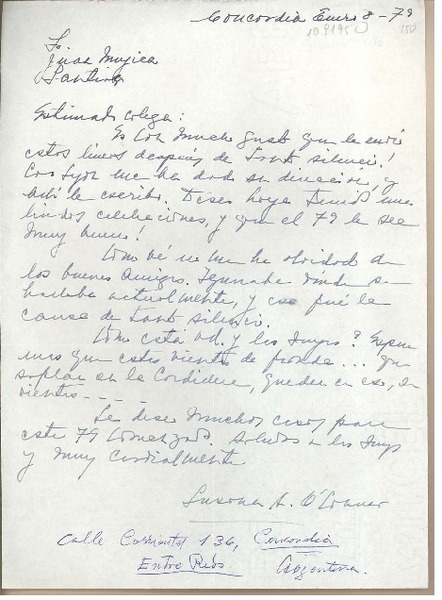 Concordia Enero 8-79
109195
Sr.
Juan Mujica
Santiago
Estimado colega:
Es con mucho gusto que le envío
estos líneos después de tanto silencio!
me ha dado su dirección, y
le escribo. Deseo haya tenido unas
lindas celebraciones, y que el 79 le sea
muy bueno!
Como vé no me he olvidado de
los buenos amigos. Ignoraba dónde se
hallaba actualmente, y eso fué la
causa de tanto silencio.
Cómo está Ud. y los suyos? Espere
mos que estos vientos de fronda... que
soplan en la Cordillera, queden en eso, en
vientos - - - -
Le deseo muchas cosas para
este 79 comenzado. Saludos a los suyos
y muy cordialmente
Susana A. O'Connor
Calle Corrientes 136, Concordia
Entre Ríos Argentina.